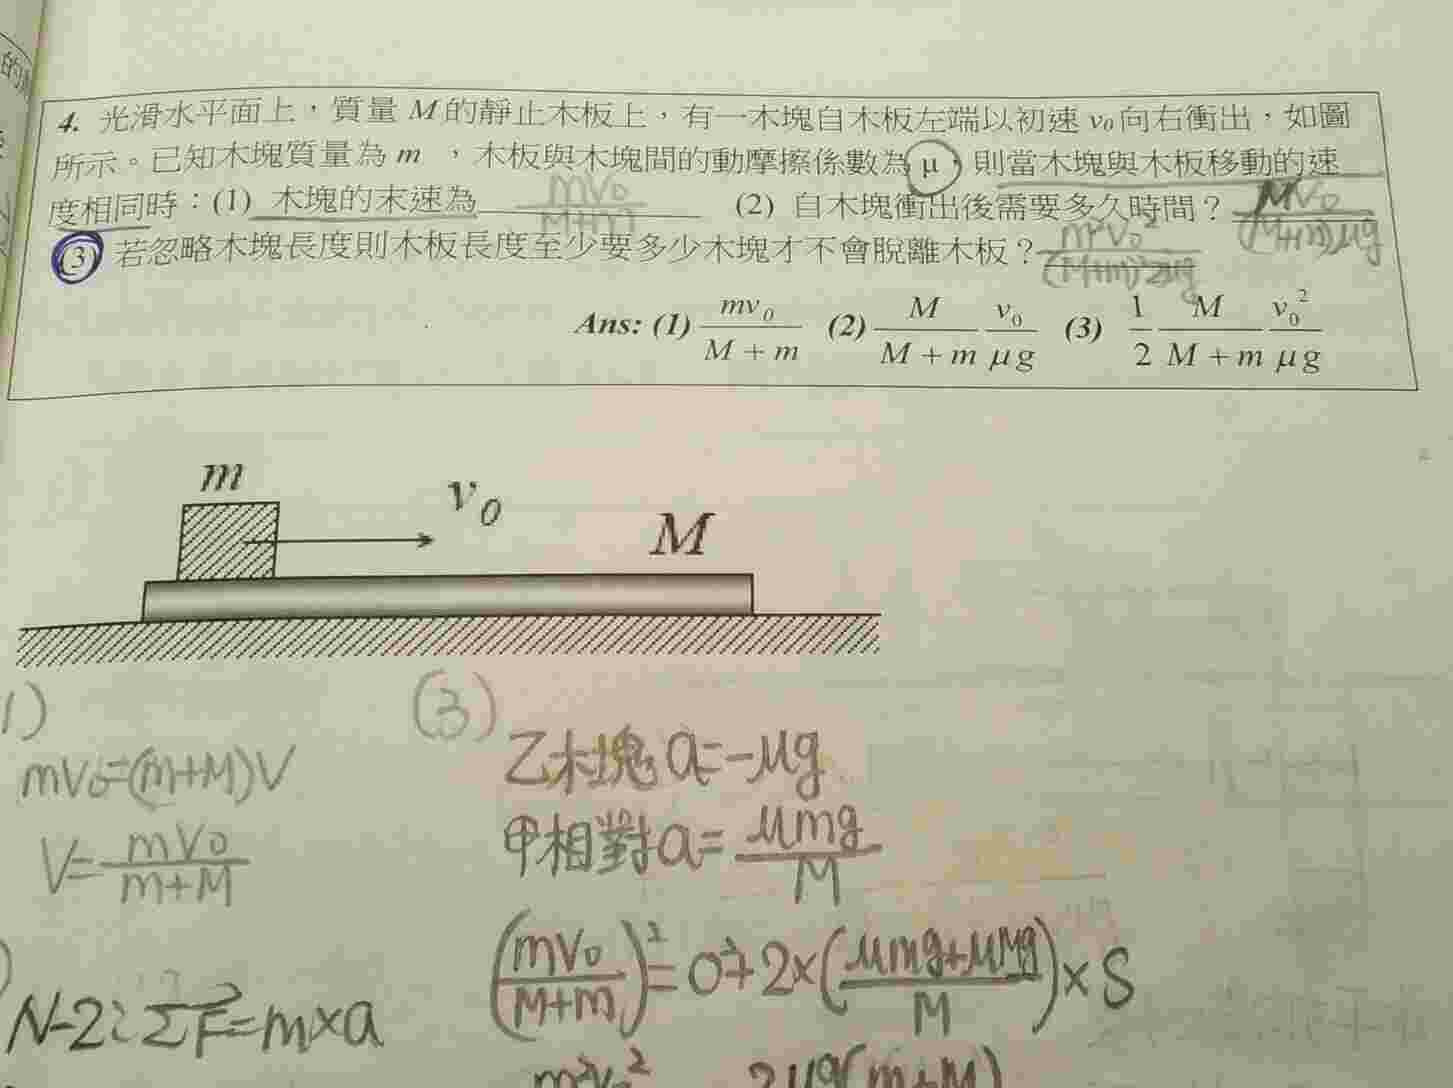 4. 光滑水平面上，質量 M 的靜止木板上，有一木塊自木板左端以初速 v₀ 向右衝出，如圖
所示。已知木塊質量為 m ，木板與木塊間的動摩擦係數為 μ，則當木塊與木板移動的速
度相同時：(1) 木塊的末速為 mv₀/(M+m) (2) 自木塊衝出後需要多久時間？ Mv₀/((M+m)μg)
(3) 若忽略木塊長度則木板長度至少要多少木塊才不會脫離木板？ m²v₀²/((M+m)²2μg)
Ans: (1) mv₀/(M + m) (2) M/(M + m) v₀/(μg) (3) 1/2 M/(M + m) v₀²/(μg)
m
v₀
M
1)
mv₀=(m+M)V
V= mv₀/(m+M)
N-2: ΣF=m×a
(3)
乙木塊 a=-μg
甲相對 a= μmg/M
(mv₀/(M+m))²=0²+2×((μmg+μMg)/M)×S
m²v₀² 2μg(m+M)